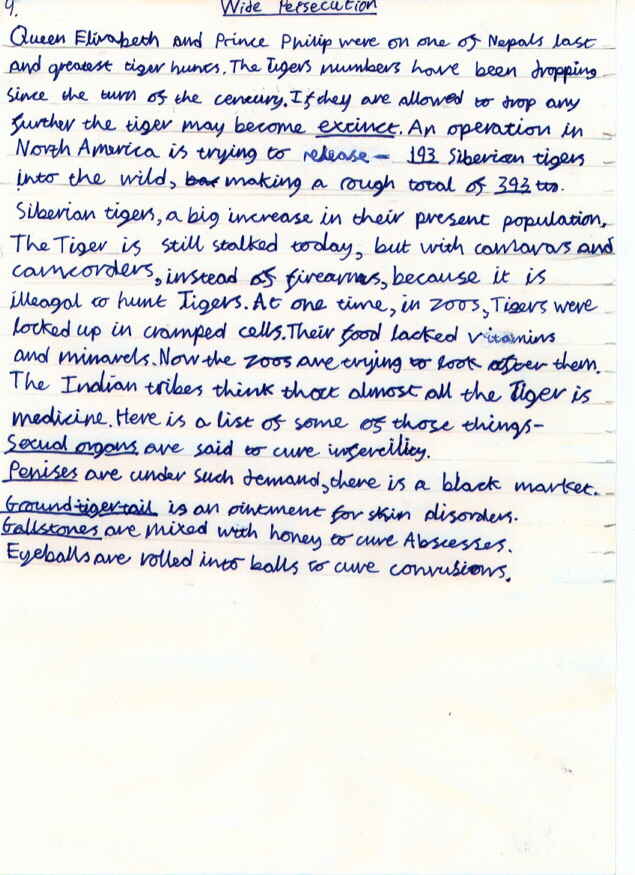 9.
Wide Persecution
Queen Elizabeth and Prince Philip were on one of Nepals last
and greatest tiger hunts. The Tigers numbers have been dropping
since the turn of the century. If they are allowed to drop any
further the tiger may become extinct. An operation in
North America is trying to release - 193 Siberian tigers
into the wild, making a rough total of 393
Siberian tigers, a big increase in their present population.
The Tiger is still stalked today, but with camaras and
camcorders, instead of firearms, because it is
illeagal to hunt Tigers. At one time, in zoos, Tigers were
locked up in cramped cells. Their food lacked vitamins
and minarels. Now the zoos are trying to look after them.
The Indian tribes think that almost all the Tiger is
medicine. Here is a list of some of those things-
Sexual organs are said to cure infertility.
Penises are under such demand, there is a black market.
Ground tiger tail is an ointment for skin disorders.
Gallstones are mixed with honey to cure Abscesses.
Eyeballs are rolled into balls to cure convusions.